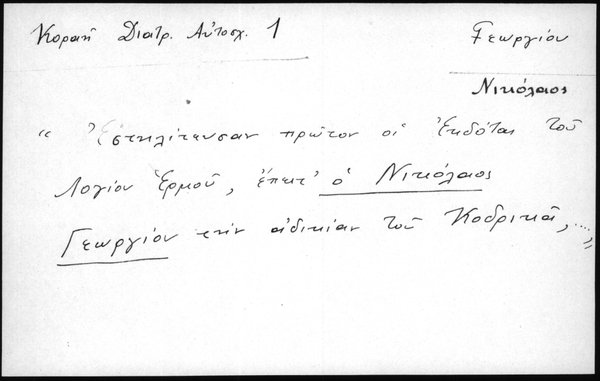 Κοραῆ Διατρ. Αὐτοσχ. 1
Γεωργίου
Νικόλαος
“ Ἐστηλίτευσαν πρῶτον οἱ Ἐκδόται τοῦ
Λογίου Ἑρμοῦ, ἔπειτ' ὁ Νικόλαος
Γεωργίου τὴν ἀδικίαν τοῦ Κοδρικᾶ,....„